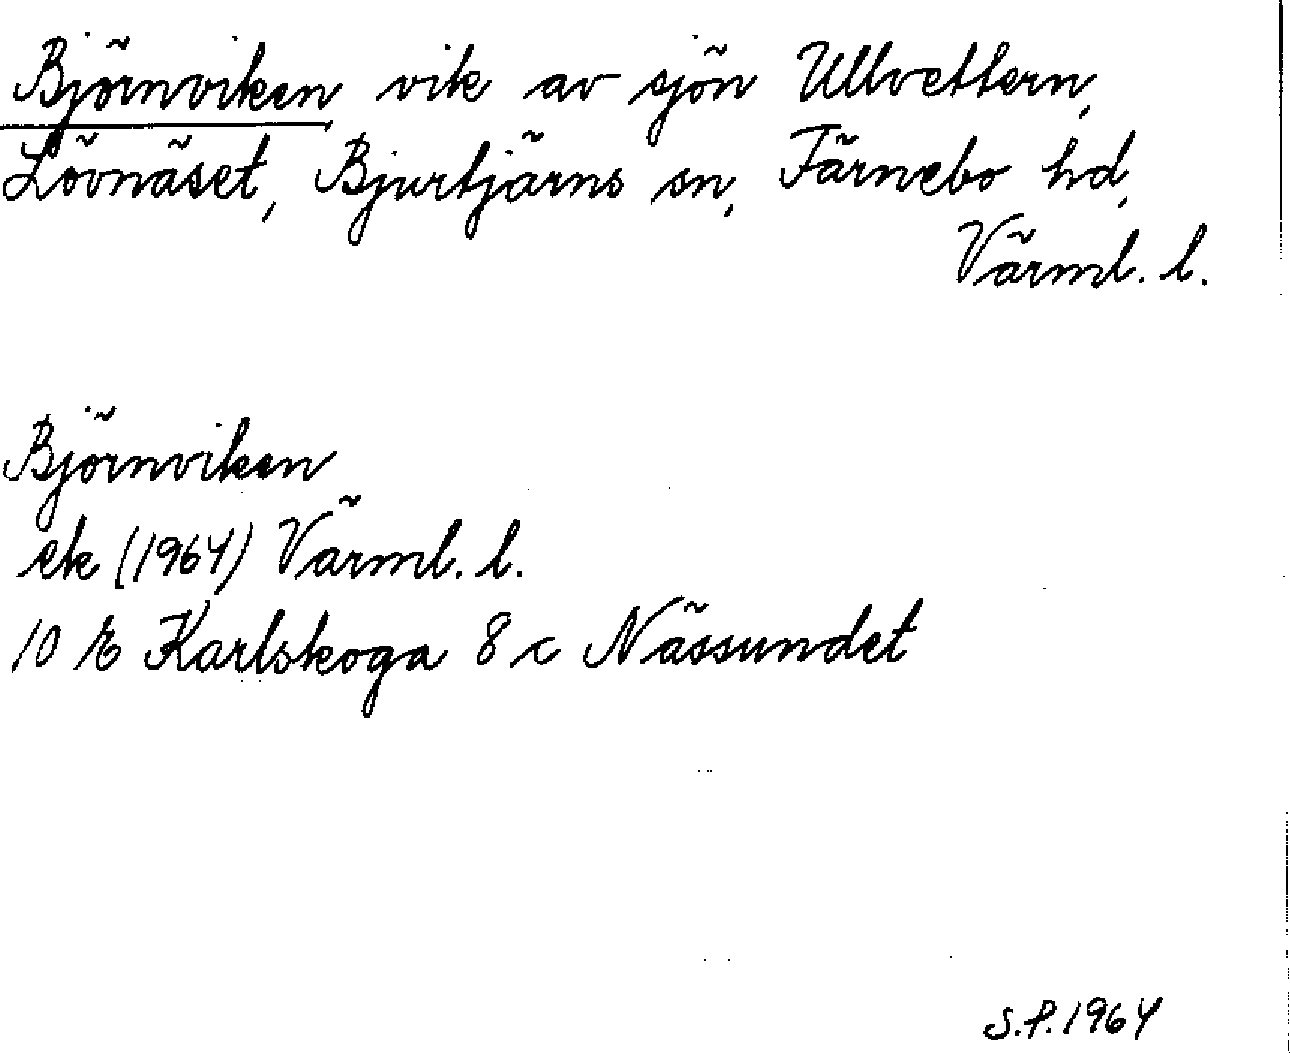 Björnviken vik av sjön Ullvettern,
Lövnäset, Bjurtjärns sn, Färnebo hd,
Värml. l.
Björnviken
ek (1964) Värml. l.
10 E Karlskoga 8 c Nässundet
S.P. 1964